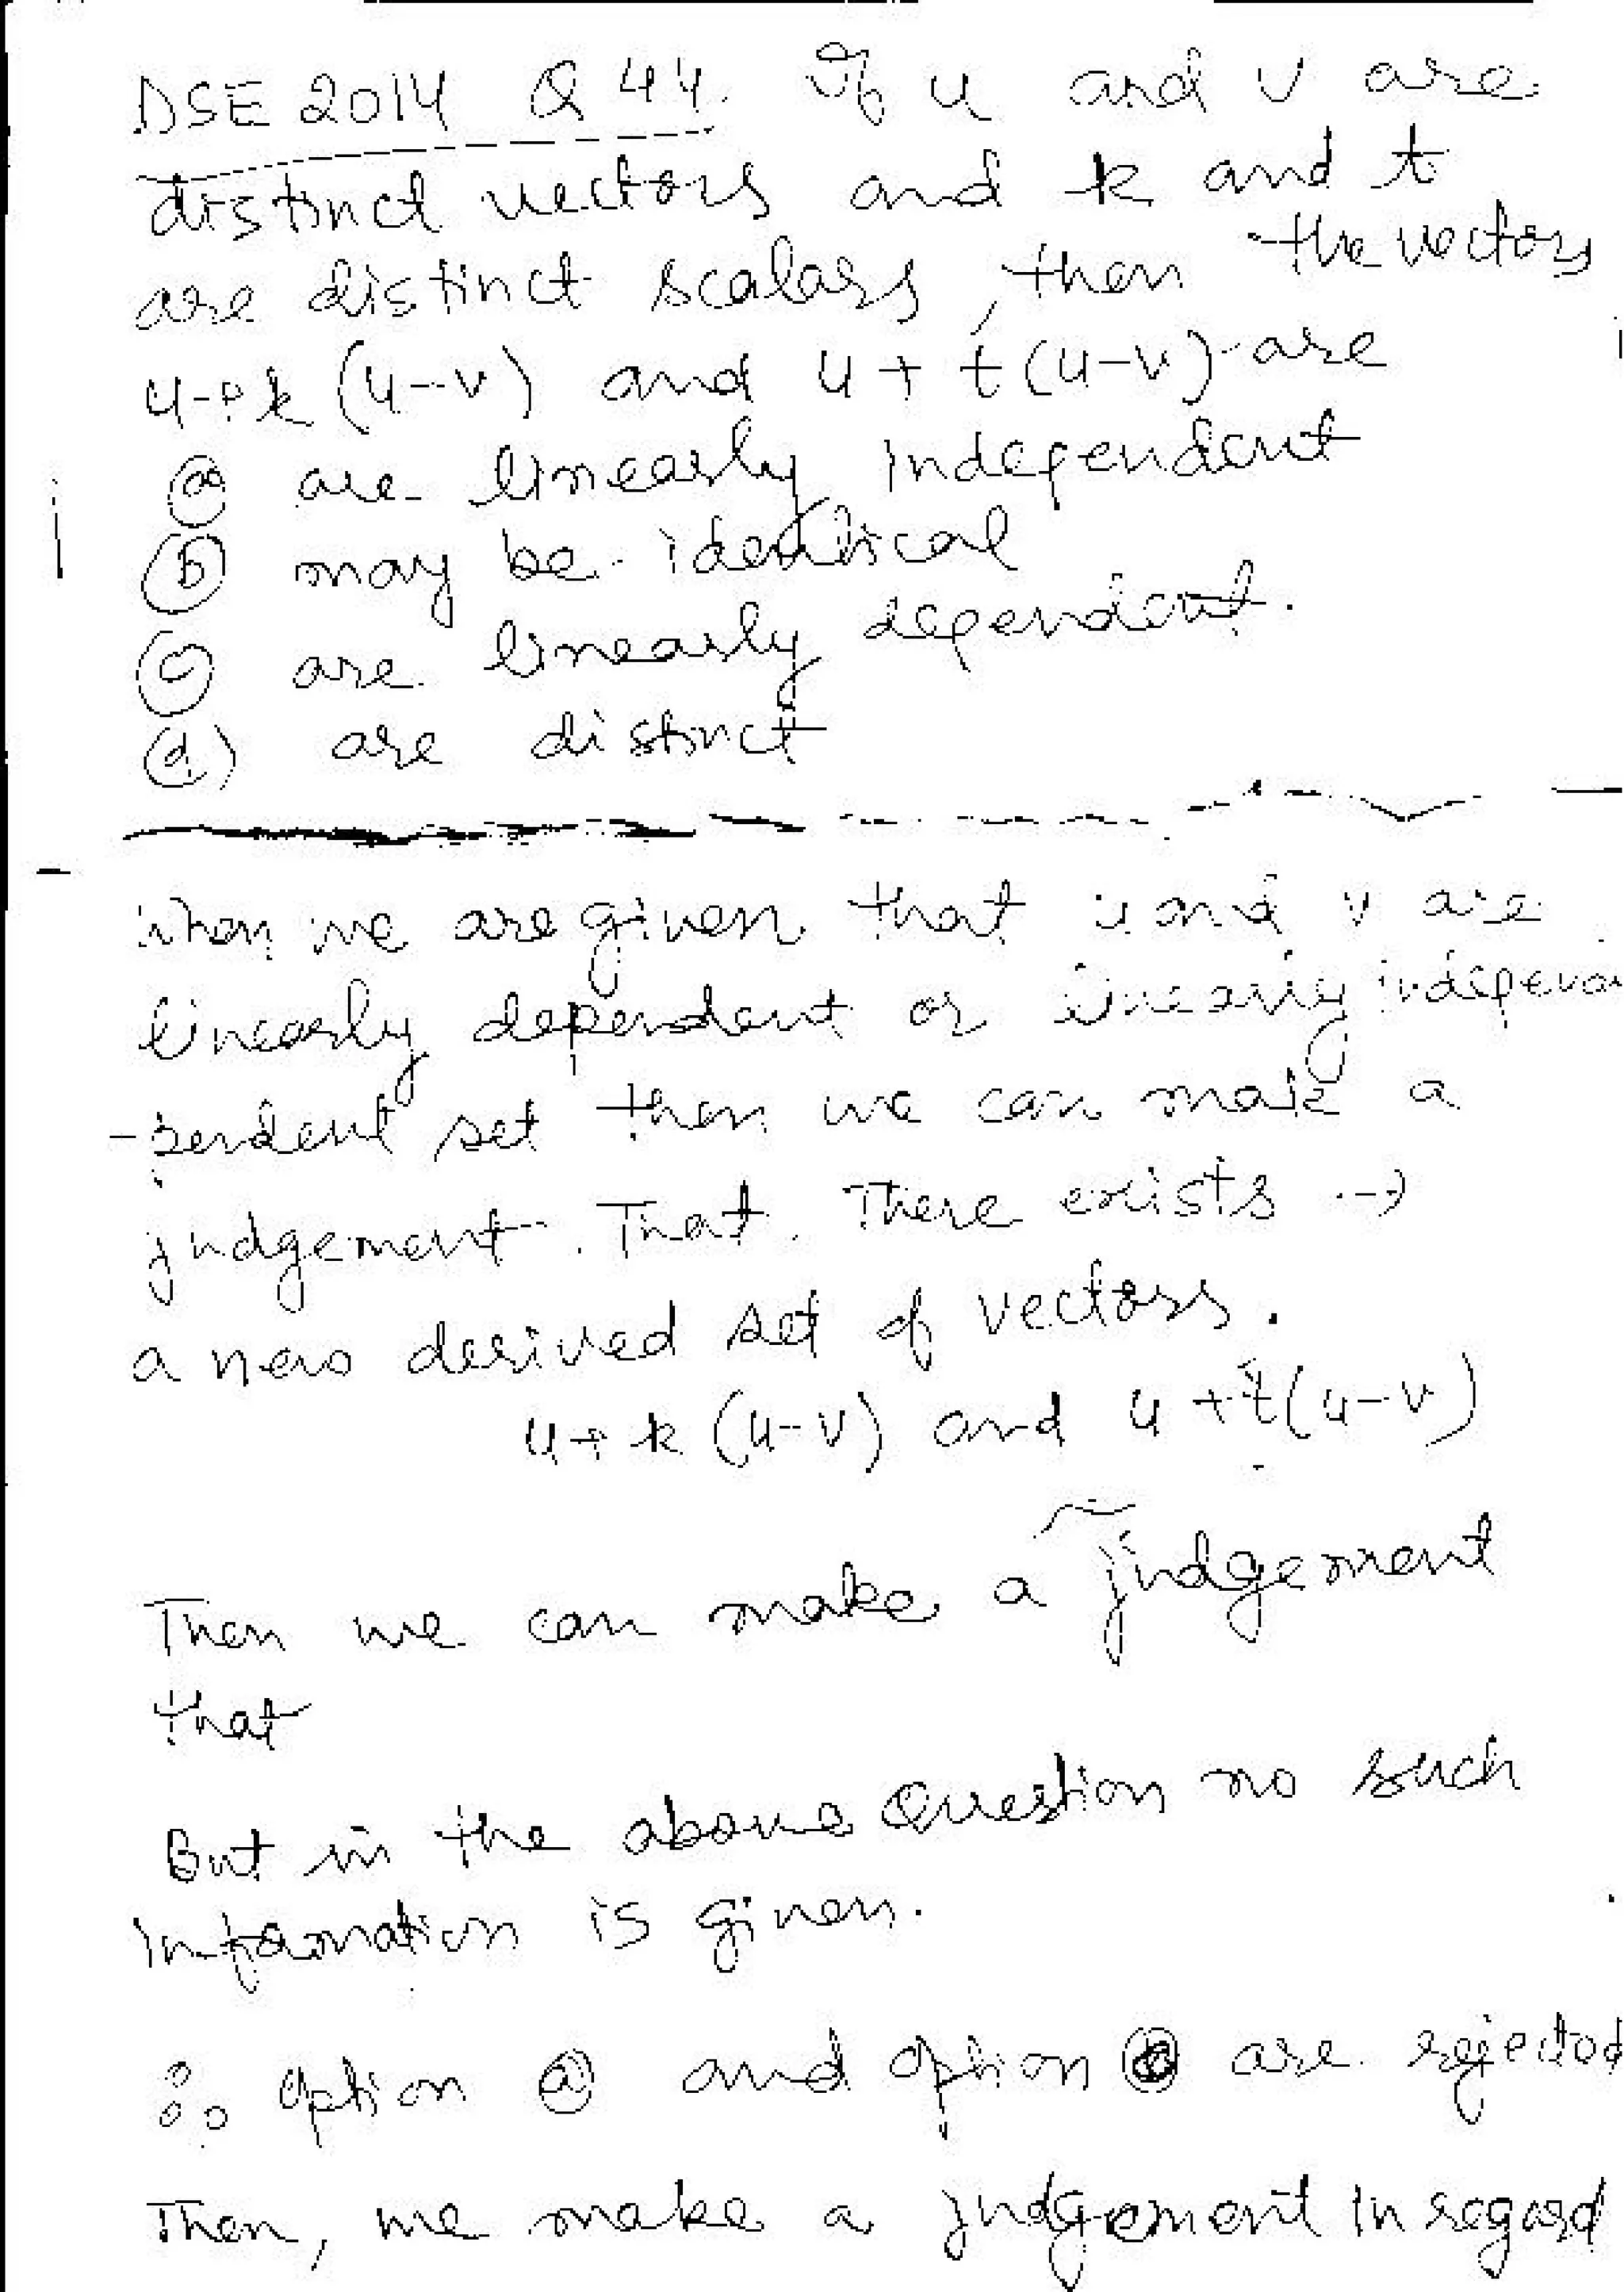 DSE 2014 Q 44. If u and v are
distinct vectors and k and t
are distinct scalars, then the vectors
u+k (u-v) and u+t(u-v) are
(a) are linearly independent
(b) may be identical
(c) are linearly dependent.
(d) are distinct
When we are given that u and v are
linearly dependent or linearly indepen
-pendent set then we can make a
judgement. That. There exists →
a new derived set of vectors.
u+k (u-v) and u+t(u-v)
Then we can make a judgement
that
But in the above Question no such
information is given.
∴ option (a) and option (c) are rejected
Then, we make a judgement in regard